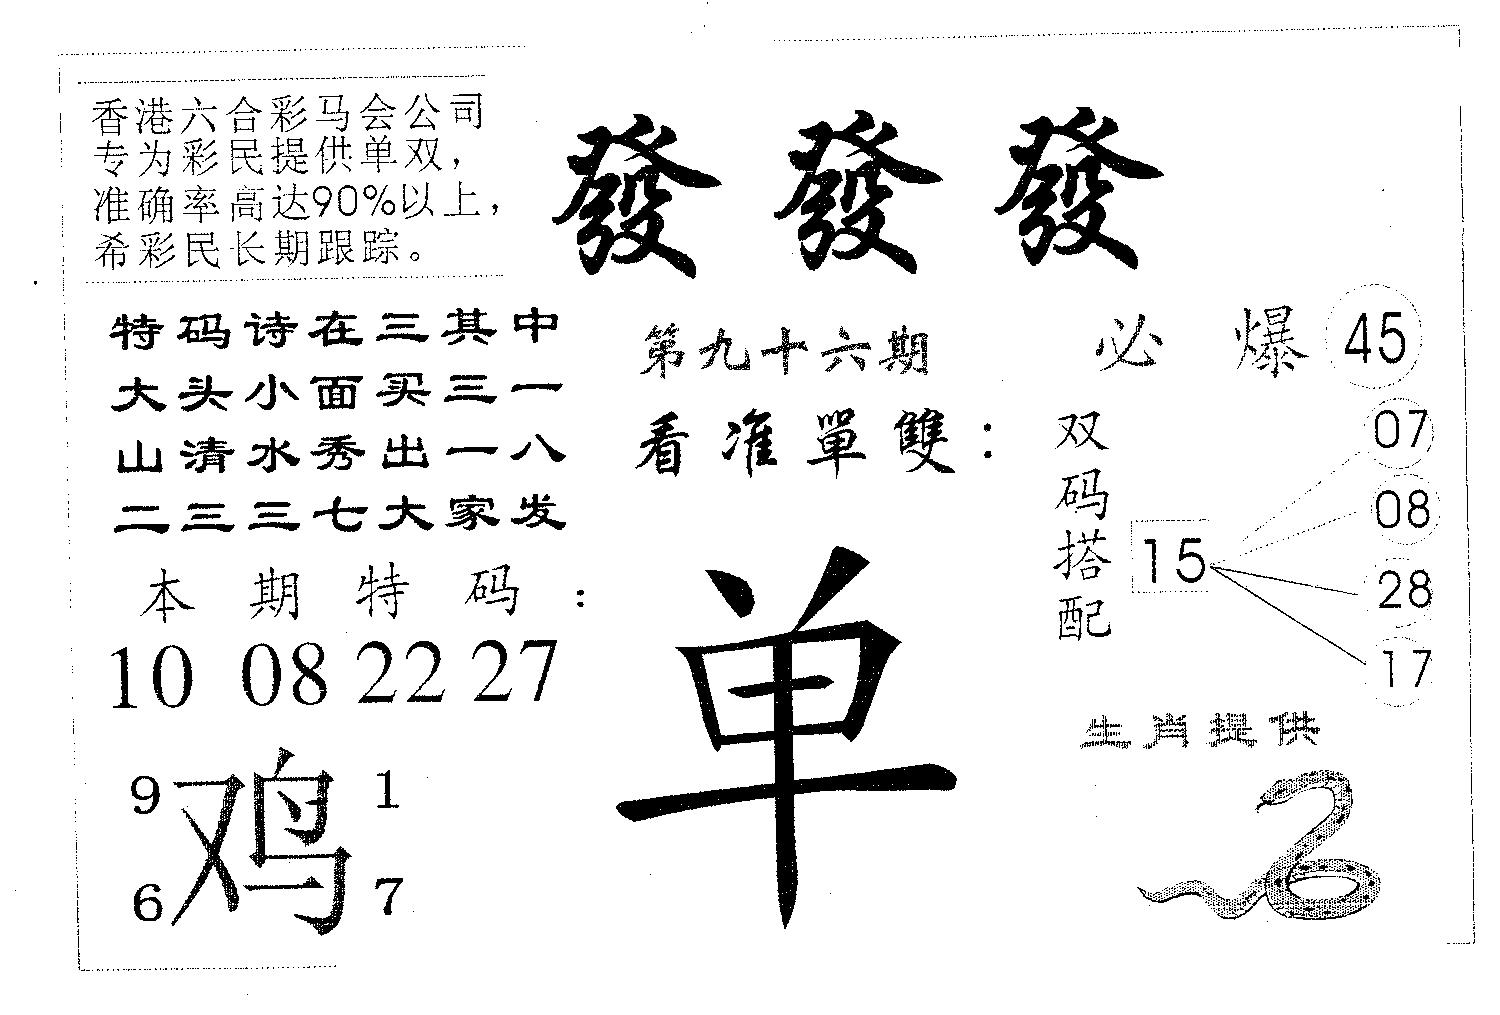 香港六合彩马会公司
专为彩民提供单双，
准确率高达90%以上，
希彩民长期跟踪。
發發發
特码诗在三其中
大头小面买三一
山清水秀出一八
二三三七大家发
第九十六期
看准單雙：
必爆45
双码搭配
15
07
08
28
17
本期特码：
10 08 22 27
单
9 1
鸡
6 7
生肖提供